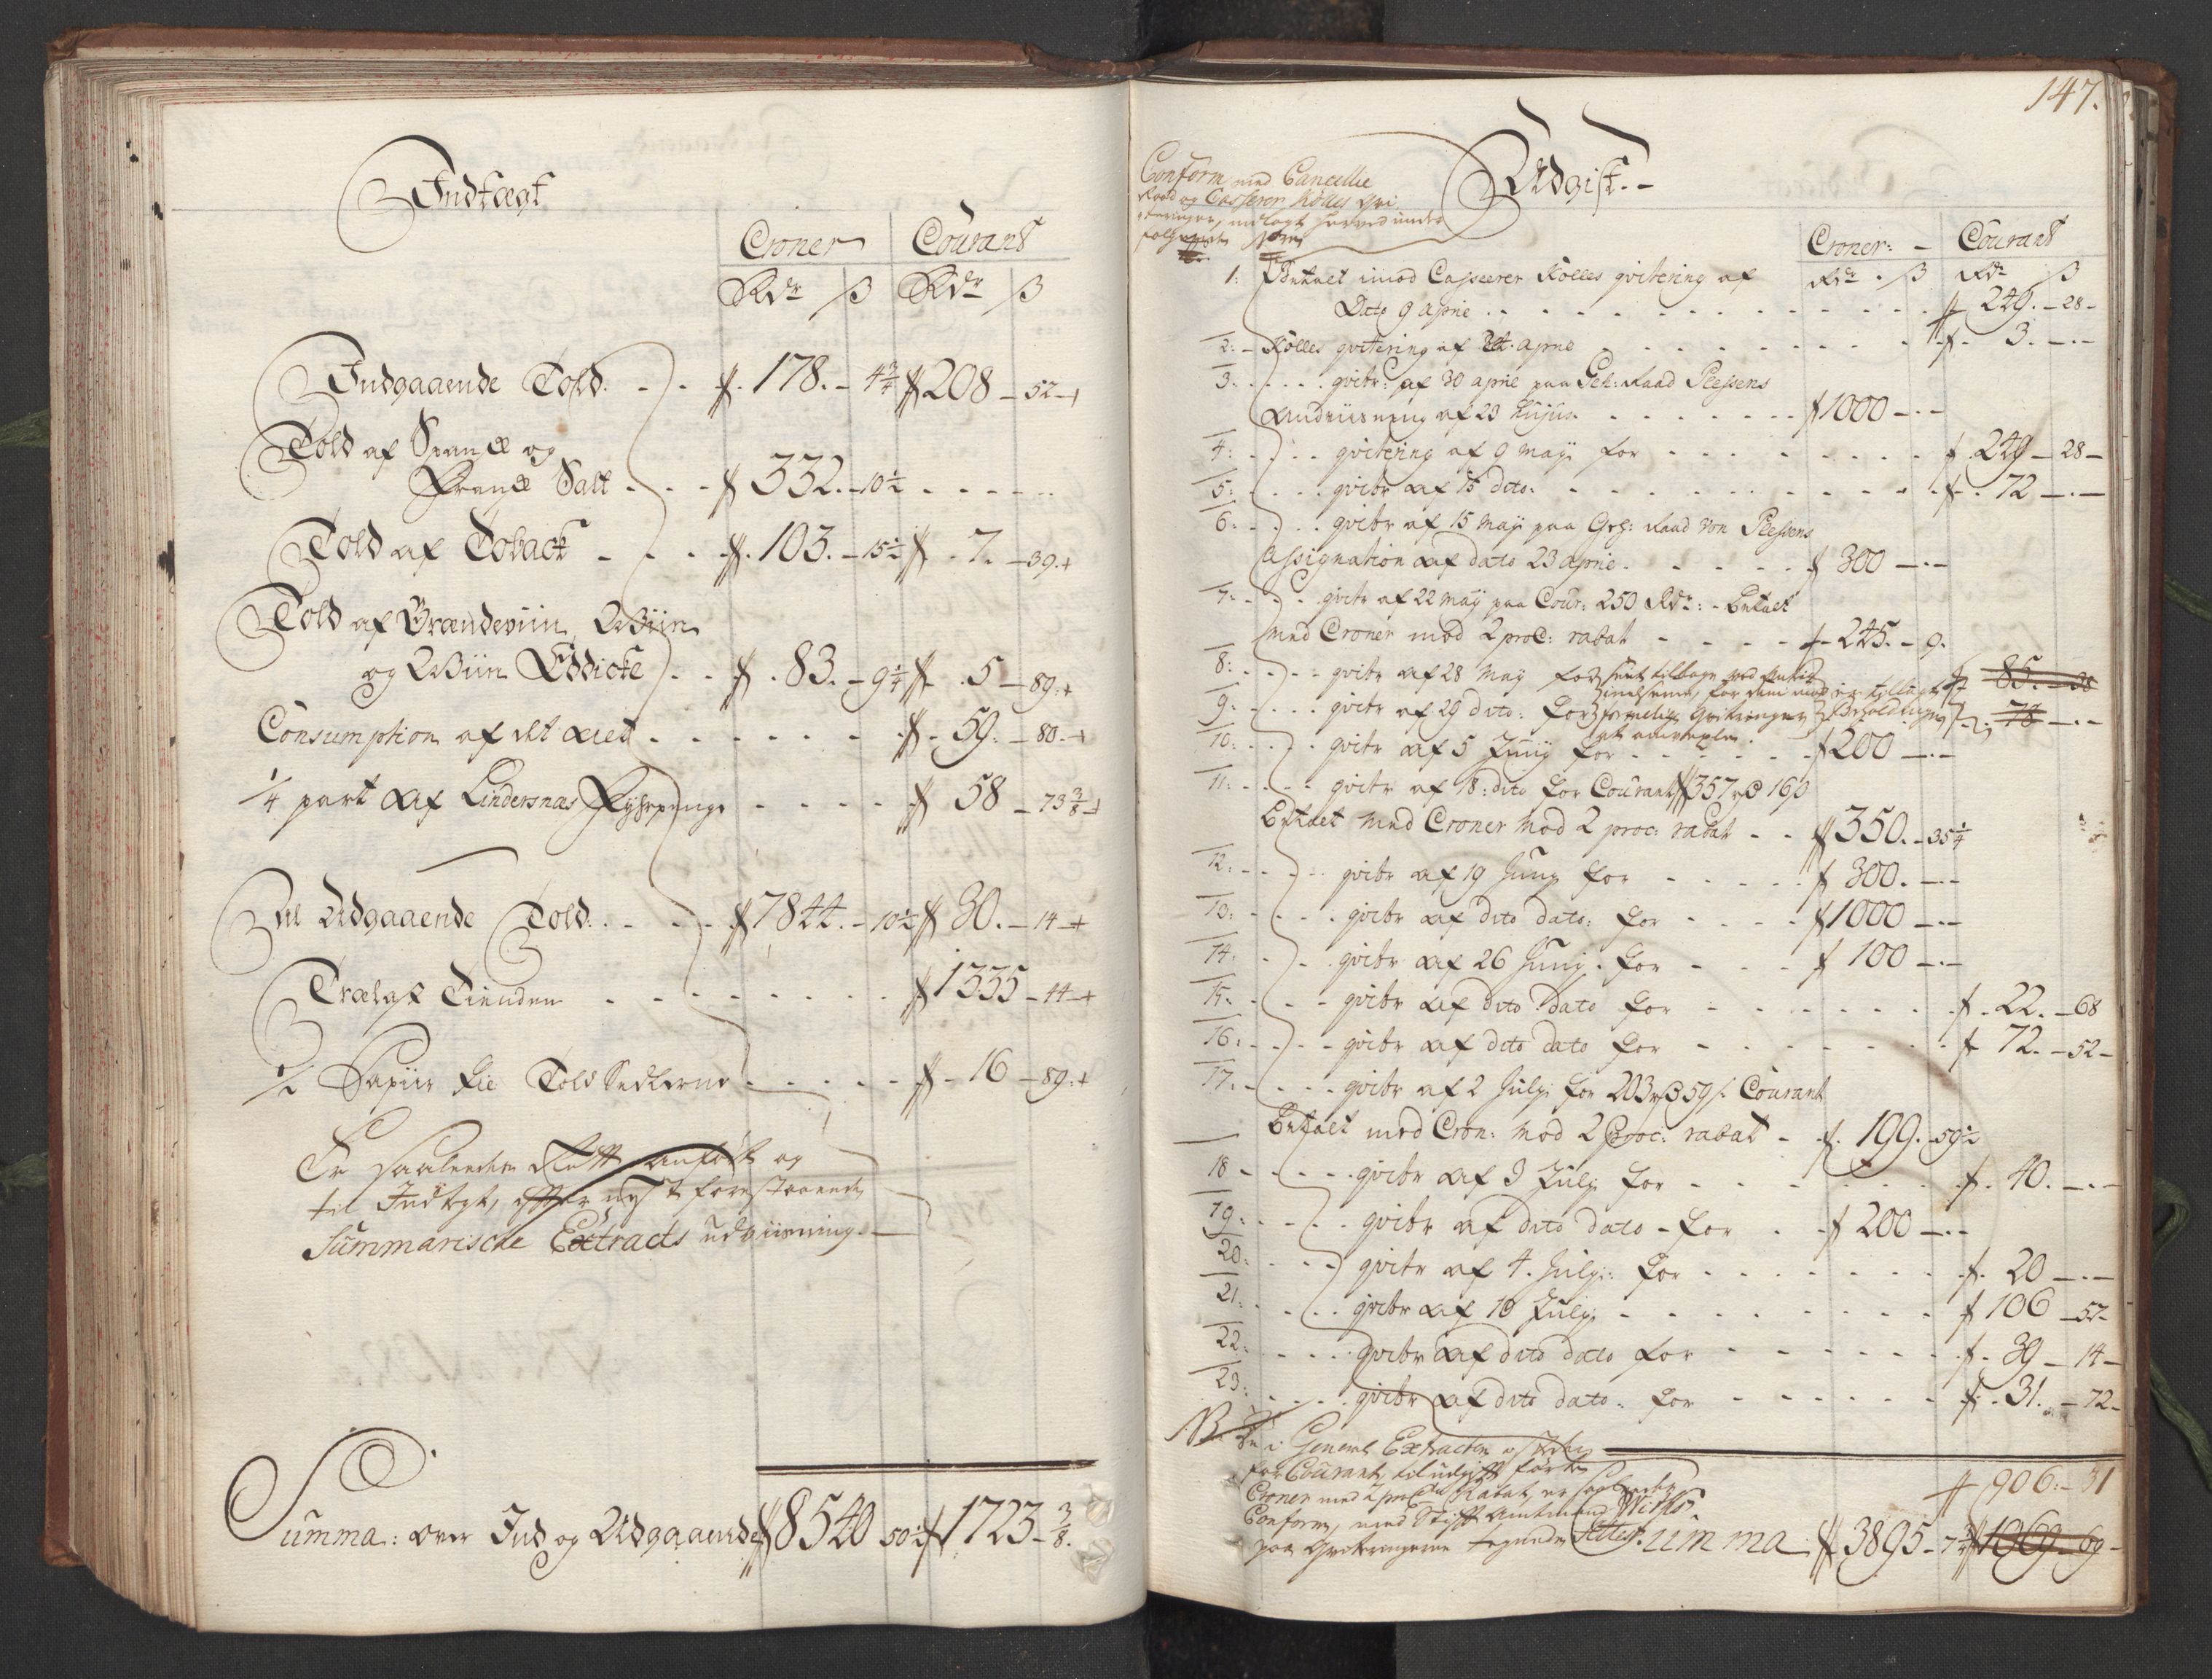 Indtægt
Croner Courant
Rdr ß Rdr ß
Indgaaende Told. - . 178. - 4 3/4 208 - 52 -
Told af Spansk og
Fransk Salt - - - 332. - 10 1/2 - - - - -
Told af Toback - - - 103. - 15 1/2 7. - 39.
Told af Brændeviin, Wiin
og Wiin Eddicke - - 83. - 9 1/4 5 - 89.
Consumption af det - - - - - - 59. - 80. -
1/4 part af Lindersnæs Fyhrpenge - - - - 58 - 73 3/8
Udgaaende Told. - - - 7844. - 10 1/2 30. - 14 -
Trælast Tienden - - - - - - - 1335 - 44 -
Papiir til Told Sedlerne - - - - - 16 - 89.
Er saaledes Rett anført og
til Indtegt, efter nest forestaaende
Summariske Extracts udviisning. -
Summa: over Ind og Udgaaende 8540 50 1/2 1723 - 3/8.
147.
Udgift. -
Conform med Cancellie
Raad og Casserer Kølles qvi
teringer, indlagt herved under
følgende
Croner: - Courant
Rdr. ß Rdr ß
1: Betalt imod Casserer Kølles qvitering af
Dato 9 aprie . . . . . . . . 249. - 28 -
2: - Kølles qvitering af 24. aprie - - - - - - 3. - . -
3: . . . . qvitr: af 30 aprie paa Geh: Raad Plessens
Anviisning af 23 hujus - - - - - - 1000 - . -
4: - . . . qvitering af 9 maji for - - - - - - 249 - 28 -
5: . . . . qvitr af 15 dito: - - - - - - - 72 - . -
6: - . . . qvitr af 15 maji paa Geh: Raad von Plessens
assignation af dato 23 aprie. - - - - - 300 - . -
7: - . . . qvitr af 22 maij paa Cour: 250 Rdr: - Betalt
med Croner mod 2 proC: rabat - - - - 245. - 9.
8: - . . - qvitr af 28 May for 85. - 38
9: - . . . qvitr af 29 dito: for 78 - . -
10: - . . . qvitr af 5 Junij for - - - - - - 200 - . -
11: - . . . qvitr af 18: dito for Courant 357 rd 16 ß
Betalt med Croner mod 2 proc: rabat - - 350. - 35 1/4
12: - . . - qvitr af 19 Junij for - - - - - 300. - . -
13: - . . . qvitr af dito dato: for - - - - 1000 - . -
14: - . . . qvitr af 26 Junij. for - - - 100 - . -
15: - . . - qvitr af dito dato for - - - - - - 22. - 68
16: - . . - qvitr af dito dato for - - - - - - 72. - 52 -
17: - . . . qvitr af 2 Julij for 203 rd 59 ß Courant
Betalt med Cron: mod 2 Proc: rabat - 199. 59 1/2
18 - - . . . qvitr af 3 Julij for - - - - - - 40. - . -
19: . - . . qvitr af dito dato - for . - 200 - . -
20: . . - . qvitr af 4. Julij: for - - - - - - 20 - . -
21: . . . . qvitr af 10 Julij - - - - - - - 106 - 52 -
22: . . . . qvitr af dito dato for - - - - - - 39 - 14 -
23: . . . . qvitr af dito dato. for - - - - - - 31. - 72 -
NB. De i General Extracten
for Courant, til udgift førte
Croner med 2 proCto Rabat, er saaledes
Conform, med Stift Amtmand
paa Qvitteringerne tegnede
906: - 31
Summa 3895 - 7 3/4 1069 - 69 -